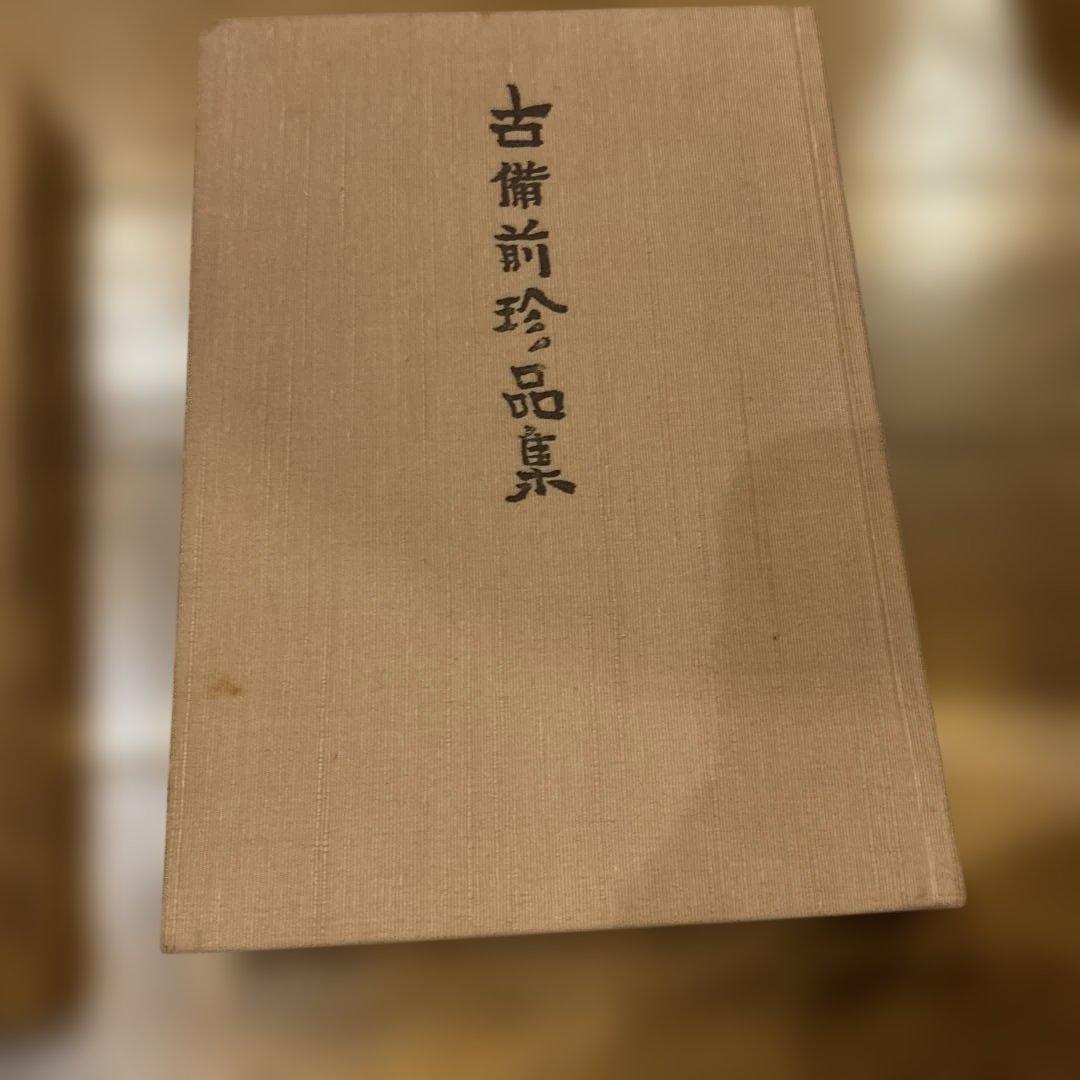 古備前珍品集